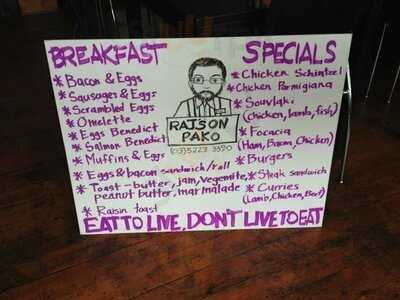 BREAKFAST
* Bacon & Eggs
* Sausages & Eggs
* Scrambled Eggs
* Omelette
* Eggs Benedict
* Salmon Benedict
* Muffins & Eggs
* Eggs & bacon sandwich/roll
* Toast - butter, jam, vegemite,
peanut butter, marmalade
* Raisin toast
RAJSON
PAKO
(03) 5223 3390
SPECIALS
* Chicken Schintzel
* Chicken Parmigiana
* Souvlaki
(Chicken, lamb, fish)
* Focacia
(Ham, Bacon, Chicken)
* Burgers
* Steak sandwich
* Curries
(Lamb, Chicken, Beef)
EAT TO LIVE, DON'T LIVE TO EAT